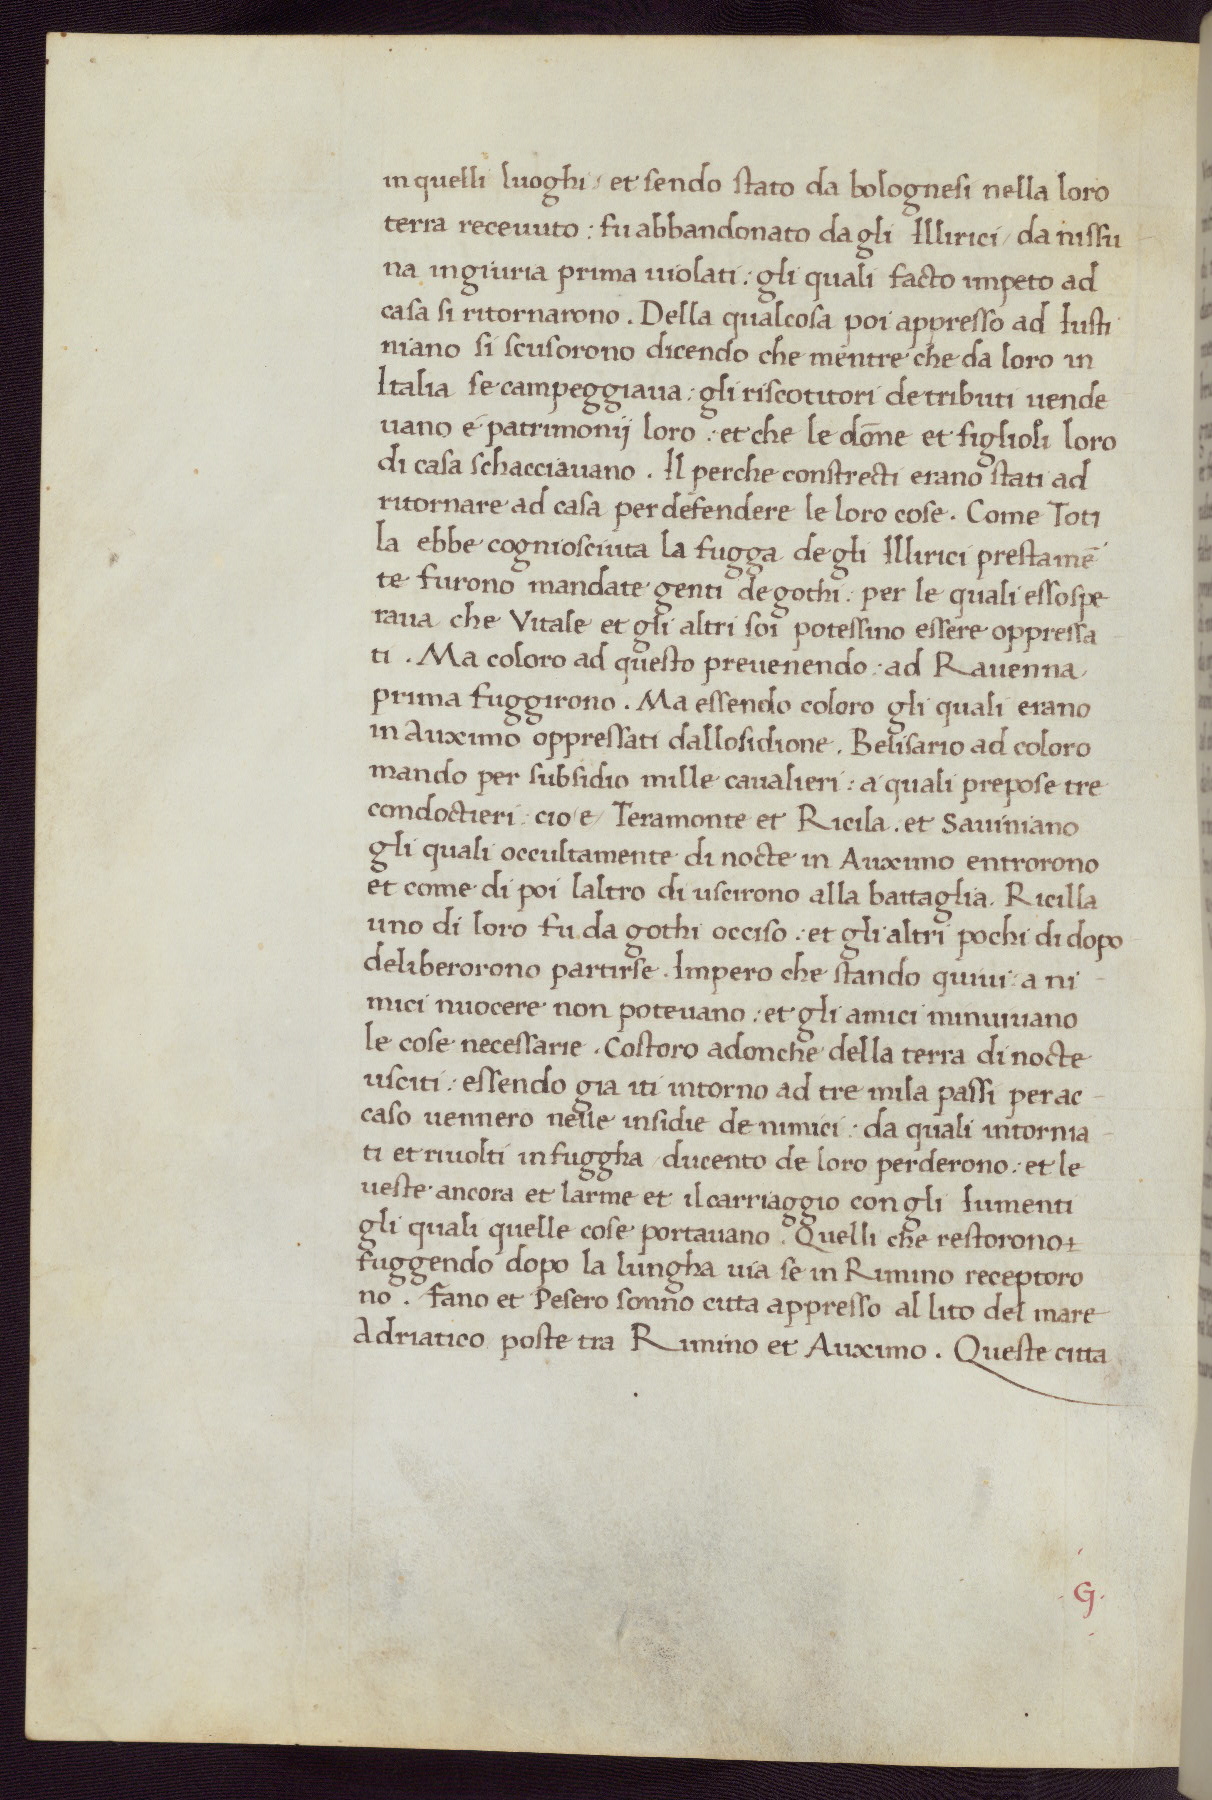 in quelli luoghi / et sendo stato da bolognesi nella loro
terra recevuto : fu abbandonato da gli Illirici / da nissu
na ingiuria prima violati : gli quali facto impeto ad
casa si ritornarono . Della qualcosa poi appresso ad Iusti
niano si scusorono dicendo che mentre che da loro in
Italia se campeggiava : gli riscotitori de tributi vende
vano e patrimonij loro : et che le dōne et figlioli loro
di casa schacciavano . Il perche constrecti erano stati ad
ritornare ad casa per defendere le loro cose . Come Toti
la ebbe cogniosciuta la fugga de gli Illirici prestamē
te furono mandate genti de gothi : per le quali esso spe
rava che Vitale et gli altri soi potessino essere oppressa
ti . Ma coloro ad questo prevenendo : ad Ravenna
prima fuggirono . Ma essendo coloro gli quali erano
in Auximo oppressati dallosidione . Belisario ad coloro
mando per subsidio mille cavalieri : a quali prepose tre
condoctieri : cio / e / Teramonte et Ricila . et Saviniano
gli quali occultamente di nocte in Auximo entrorono
et come di poi laltro di uscirono alla battaglia . Ricilla
uno di loro fu da gothi occiso : et gli altri pochi di dopo
deliberorono partirse . Impero che stando quivi : a ni
mici nuocere non potevano : et gli amici minuivano
le cose necessarie . Costoro adonche della terra di nocte
usciti : essendo gia iti intorno ad tre mila passi per ac
caso vennero nelle insidie de nimici : da quali intornia
ti et rivolti in fuggha / ducento de loro perderono : et le
veste ancora et larme et il carriaggio con gli Iumenti
gli quali quelle cose portavano . Quelli che restorono
fuggendo dopo la lungha via se in Rimino receptoro
no . Fano et Pesero sonno citta appresso al lito del mare
Adriatico poste tra Rimino et Auximo . Queste citta
. G .